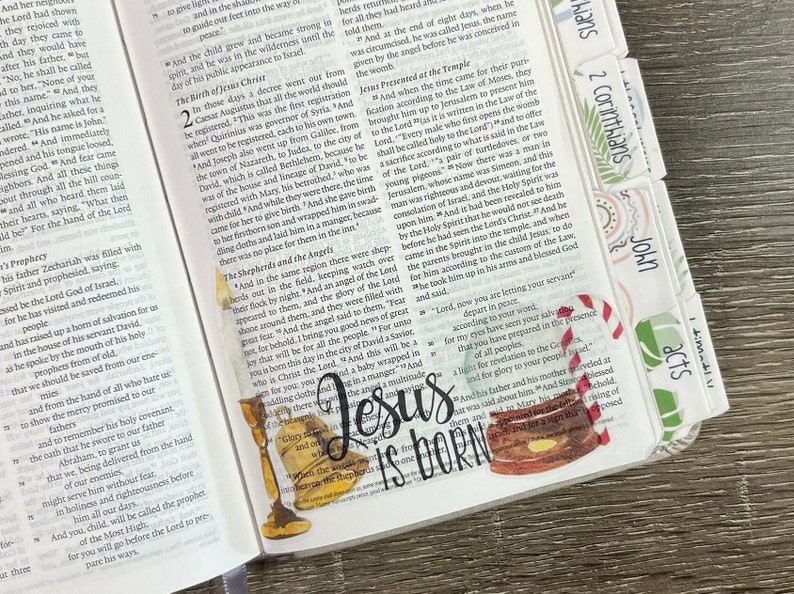 And her neighbors
the Lord had shown
her, they rejoiced with
day they came to
And they would have
after his father, 60 but
"No; he shall be called
to her, "None of your
this name." 62 And they
father, inquiring what he
called. 63 And he asked for a
wrote, "His name is John."
64 And immediately
opened and his tongue loosed,
65 And fear came
neighbors. And all these things
through all the hill coun-
and all who heard them laid
their hearts, saying, "What then
be?" For the hand of the Lord
's Prophecy
his father Zechariah was filled with
Spirit and prophesied, saying,
be the Lord God of Israel,
for he has visited and redeemed his
people
and has raised up a horn of salvation for us
in the house of his servant David,
as he spoke by the mouth of his holy
prophets from of old,
that we should be saved from our ene-
mies
and from the hand of all who hate us;
to show the mercy promised to our
fathers
and to remember his holy covenant,
the oath that he swore to our father
Abraham, to grant us
that we, being delivered from the hand
of our enemies,
might serve him without fear,
75 in holiness and righteousness before
him all our days.
76 And you, child, will be called the prophet
of the Most High;
for you will go before the Lord to pre-
pare his ways,
79 to give light to
and in the shadow
to guide our feet into the way of
peace."
80 And the child grew and became strong in
spirit, and he was in the wilderness until the
day of his public appearance to Israel.
The Birth of Jesus Christ
2 In those days a decree went out from
Caesar Augustus that all the world should
be registered. 2 This was the first registration
when Quirinius was governor of Syria. 3 And
all went to be registered, each to his own town.
4 And Joseph also went up from Galilee, from
the town of Nazareth, to Judea, to the city of
David, which is called Bethlehem, because he
was of the house and lineage of David, 5 to be
registered with Mary, his betrothed, who was
with child. 6 And while they were there, the time
came for her to give birth. 7 And she gave birth
to her firstborn son and wrapped him in swad-
dling cloths and laid him in a manger, because
there was no place for them in the inn.
The Shepherds and the Angels
8 And in the same region there were shep-
herds out in the field, keeping watch over
their flock by night. 9 And an angel of the Lord
appeared to them, and the glory of the Lord
shone around them, and they were filled with
great fear. 10 And the angel said to them, "Fear
not, for behold, I bring you good news of great
joy that will be for all the people. 11 For unto
you is born this day in the city of David a Savior,
who is Christ the Lord. 12 And this will be a
sign for you: you will find a baby wrapped in
swaddling cloths and lying in a manger." 13 And
suddenly there was with the angel a multitude
of the heavenly
14 "Glory to God
and on
whom
15 When the angels went
into heaven, the shepherds said to one another,
herds returned
for all they had heard and
told them.
21 And at the end of eight days, when he
was circumcised, he was called Jesus, the name
given by the angel before he was conceived in
the womb.
Jesus Presented at the Temple
22 And when the time came for their puri-
fication according to the Law of Moses, they
brought him up to Jerusalem to present him
to the Lord 23 (as it is written in the Law of the
Lord, "Every male who first opens the womb
shall be called holy to the Lord") 24 and to offer
a sacrifice according to what is said in the Law
of the Lord, "a pair of turtledoves, or two
young pigeons." 25 Now there was a man in
Jerusalem, whose name was Simeon, and this
man was righteous and devout, waiting for the
consolation of Israel, and the Holy Spirit was
upon him. 26 And it had been revealed to him
by the Holy Spirit that he would not see death
before he had seen the Lord's Christ. 27 And he
came in the Spirit into the temple, and when
the parents brought in the child Jesus, to do
for him according to the custom of the Law,
28 he took him up in his arms and blessed God
and said,
29 "Lord, now you are letting your servant
depart in peace,
according to your word;
30 for my eyes have seen your salvation
31 that you have prepared in the presence
of all peoples,
32 a light for revelation to the Gentiles,
and for glory to your people Israel."
33 And his father and his mother marveled at
what was said about him. 34 And Simeon blessed
them and said to Mary his mother, "Behold,
this child is appointed for the fall and rising of
many in Israel, and for a sign that is opposed
Jesus
IS BORN
2 Corinthians
John
acts
1 timothy